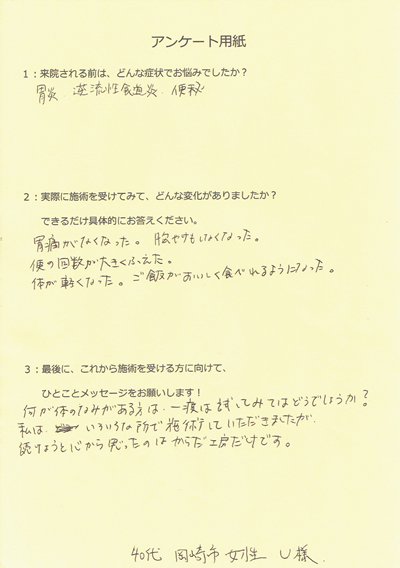 アンケート用紙
1：来院される前は、どんな症状でお悩みでしたか？
胃炎 逆流性食道炎. 便秘
2：実際に施術を受けてみて、どんな変化がありましたか？
できるだけ具体的にお答えください。
胃痛がなくなった。胸やけもなくなった。
便の回数が大きくふえた。
体が軽くなった。ご飯がおいしく食べれるようになった。
3：最後に、これから施術を受ける方に向けて、
ひとことメッセージをお願いします！
何が体のなみがある方は、一度はためしてみてはどうでしょうか？
私は、いろいろな所で施術していただきましたが、
続けようと心から思ったのはからだ工房だけです。
40代 岡崎市 女性 U様.